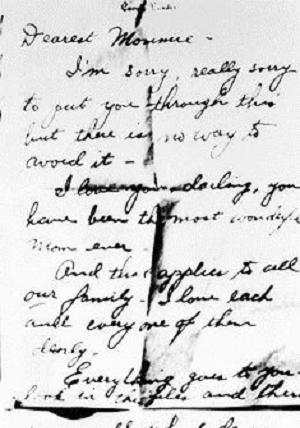 Dearest Mommie -
I'm sorry, really sorry
to put you through this
but there is no way to
avoid it -
I love you darling, you
have been the most wonderful
mom ever
And that applies to all
our family. I love each
and every one of them
dearly.
Everything goes to you
look in the files and there